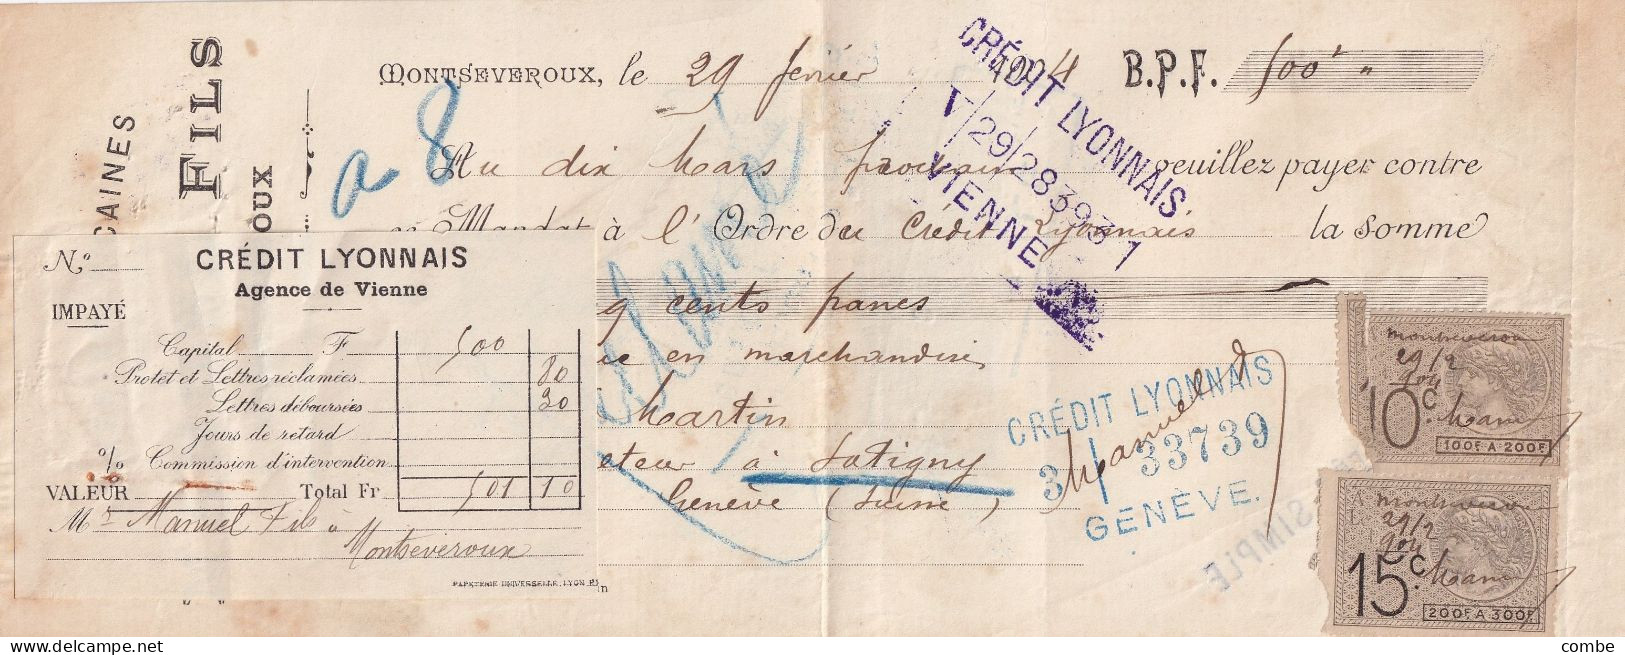 CAINES
FILS
OUX
MONTSEVEROUX, le 29 février 1904 B.P.F. 500f "
a 8
Au dix Mars prochain veuillez payer contre
ce Mandat à l'Ordre du Crédit Lyonnais la somme
q cents francs
en marchandises
Martin
cteur à Satigny
Genève (Suisse)
Manuel
CRÉDIT LYONNAIS
29/28393 1
VIENNE
CRÉDIT LYONNAIS
3 33739
GENÈVE.
SIMPLE
No. CRÉDIT LYONNAIS
Agence de Vienne
IMPAYÉ
Capital F 500
Protêt et Lettres réclamées 80
Lettres déboursées 30
Jours de retard
% Commission d'intervention
VALEUR Total Fr 501 10
Mr Manuel Fils à
Montseveroux
PAPETERIE UNIVERSELLE, LYON
Montseveroux
29/2
904
10c.
100F. A 200F.
Montseveroux
29/2
904
15c.
200F. A 300F.
combe